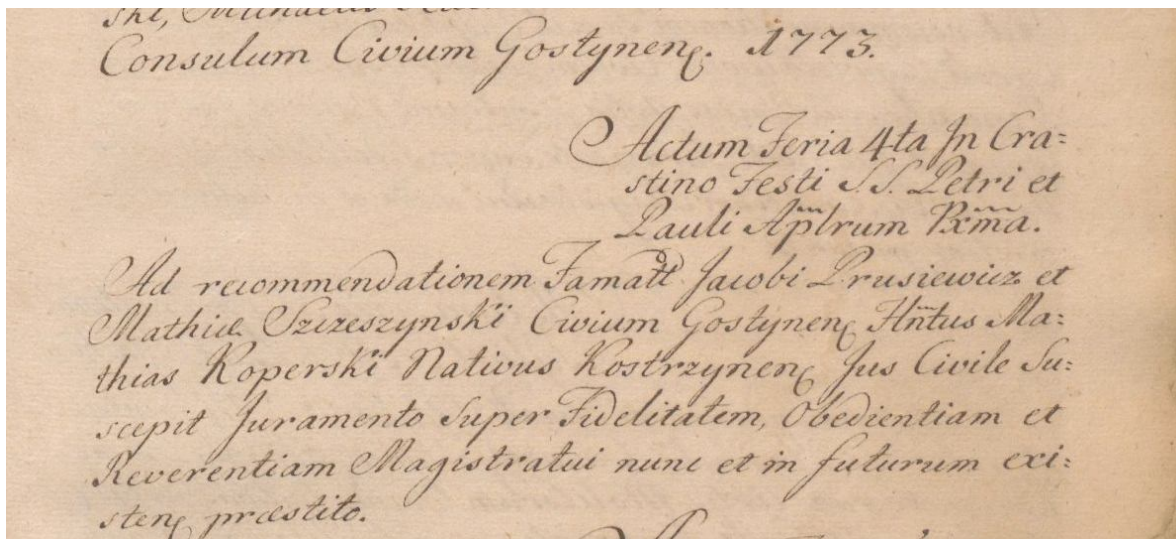 ski, Michaelis
Consulum Civium Gostynen. 1773.
Actum Feria 4ta In Cra=
stino Festi S.S. Petri et
Pauli Aplrum Pxma.
Ad recommendationem Famatt Jacobi Prusiewicz et
Mathiæ Szczeszynski Civium Gostynen Hntus Ma=
thias Koperski Nativus Kostrzynen Jus Civile Su=
scepit Juramento Super Fidelitatem, Obedientiam et
Reverentiam Magistratui nunc et in futurum exi=
sten præstito.